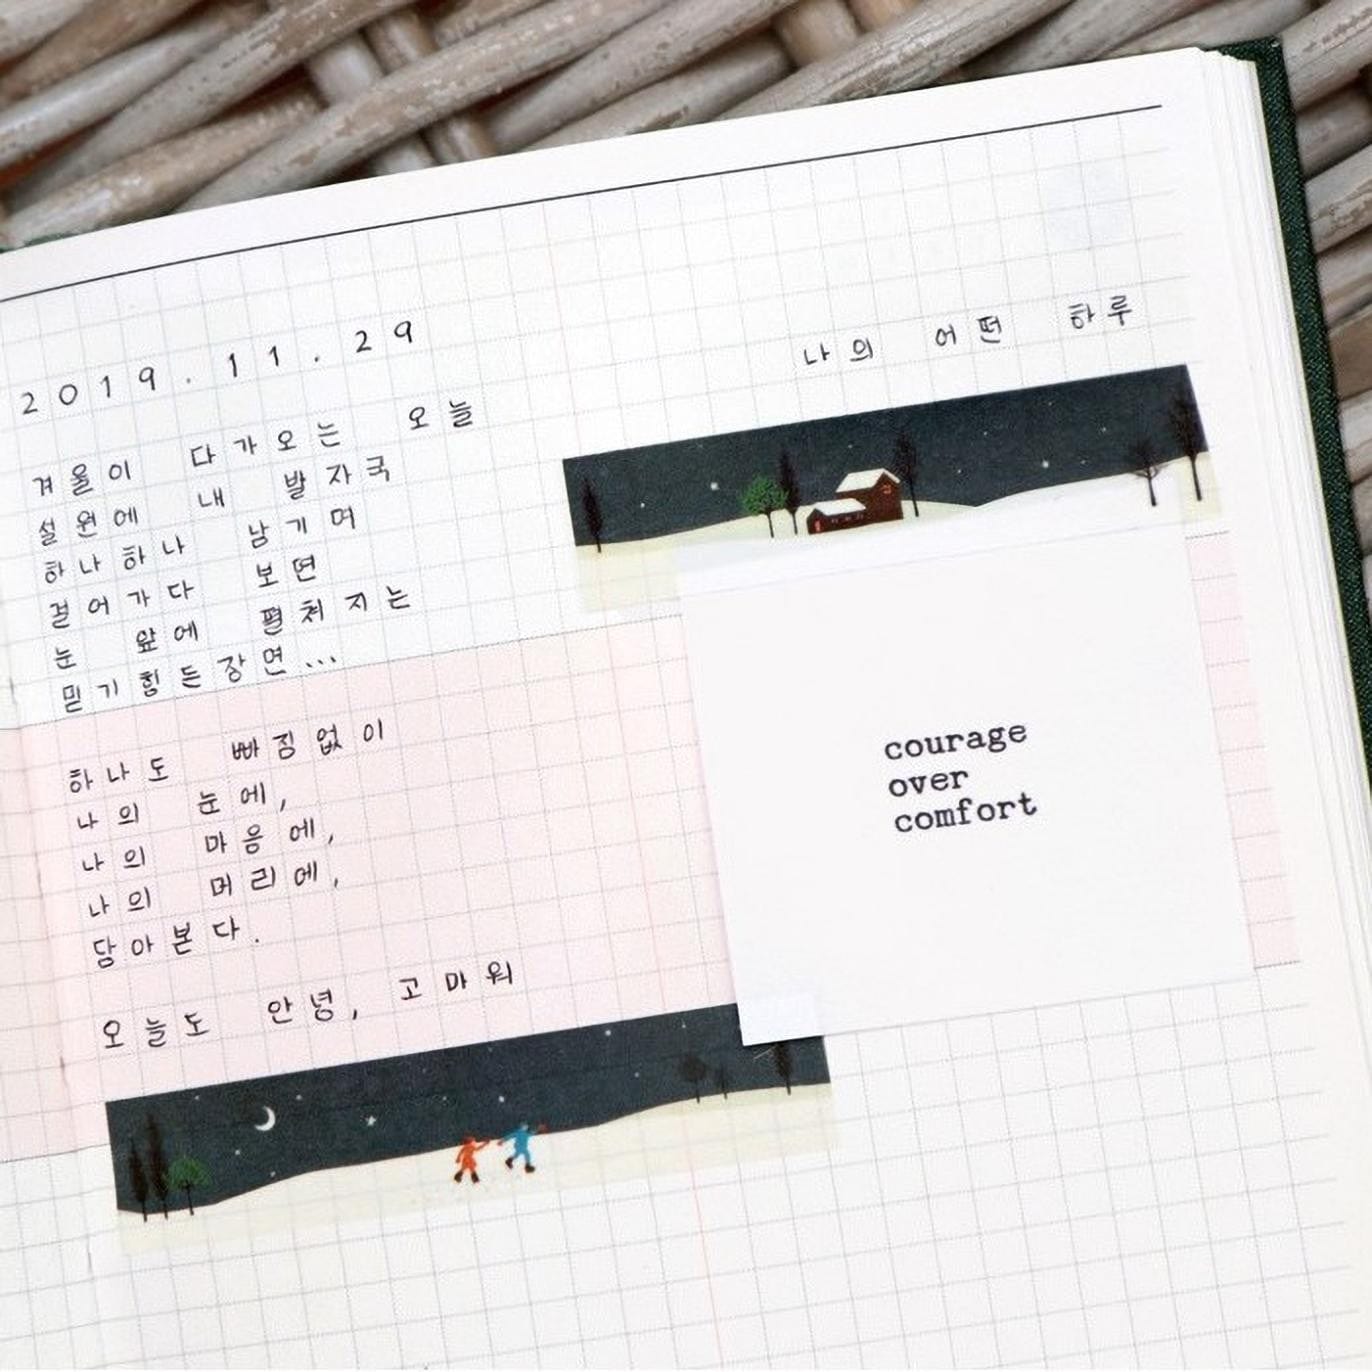 2019.11.29
겨울이 다가오는 오늘
설원에 내 발자국
하나하나 남기며
걸어가다 보면
눈 앞에 펼쳐지는
믿기힘든장면...
하나도 빠짐없이
나의 눈에,
나의 마음에,
나의 머리에,
담아본다.
오늘도 안녕, 고마워
나의 어떤 하루
courage
over
comfort